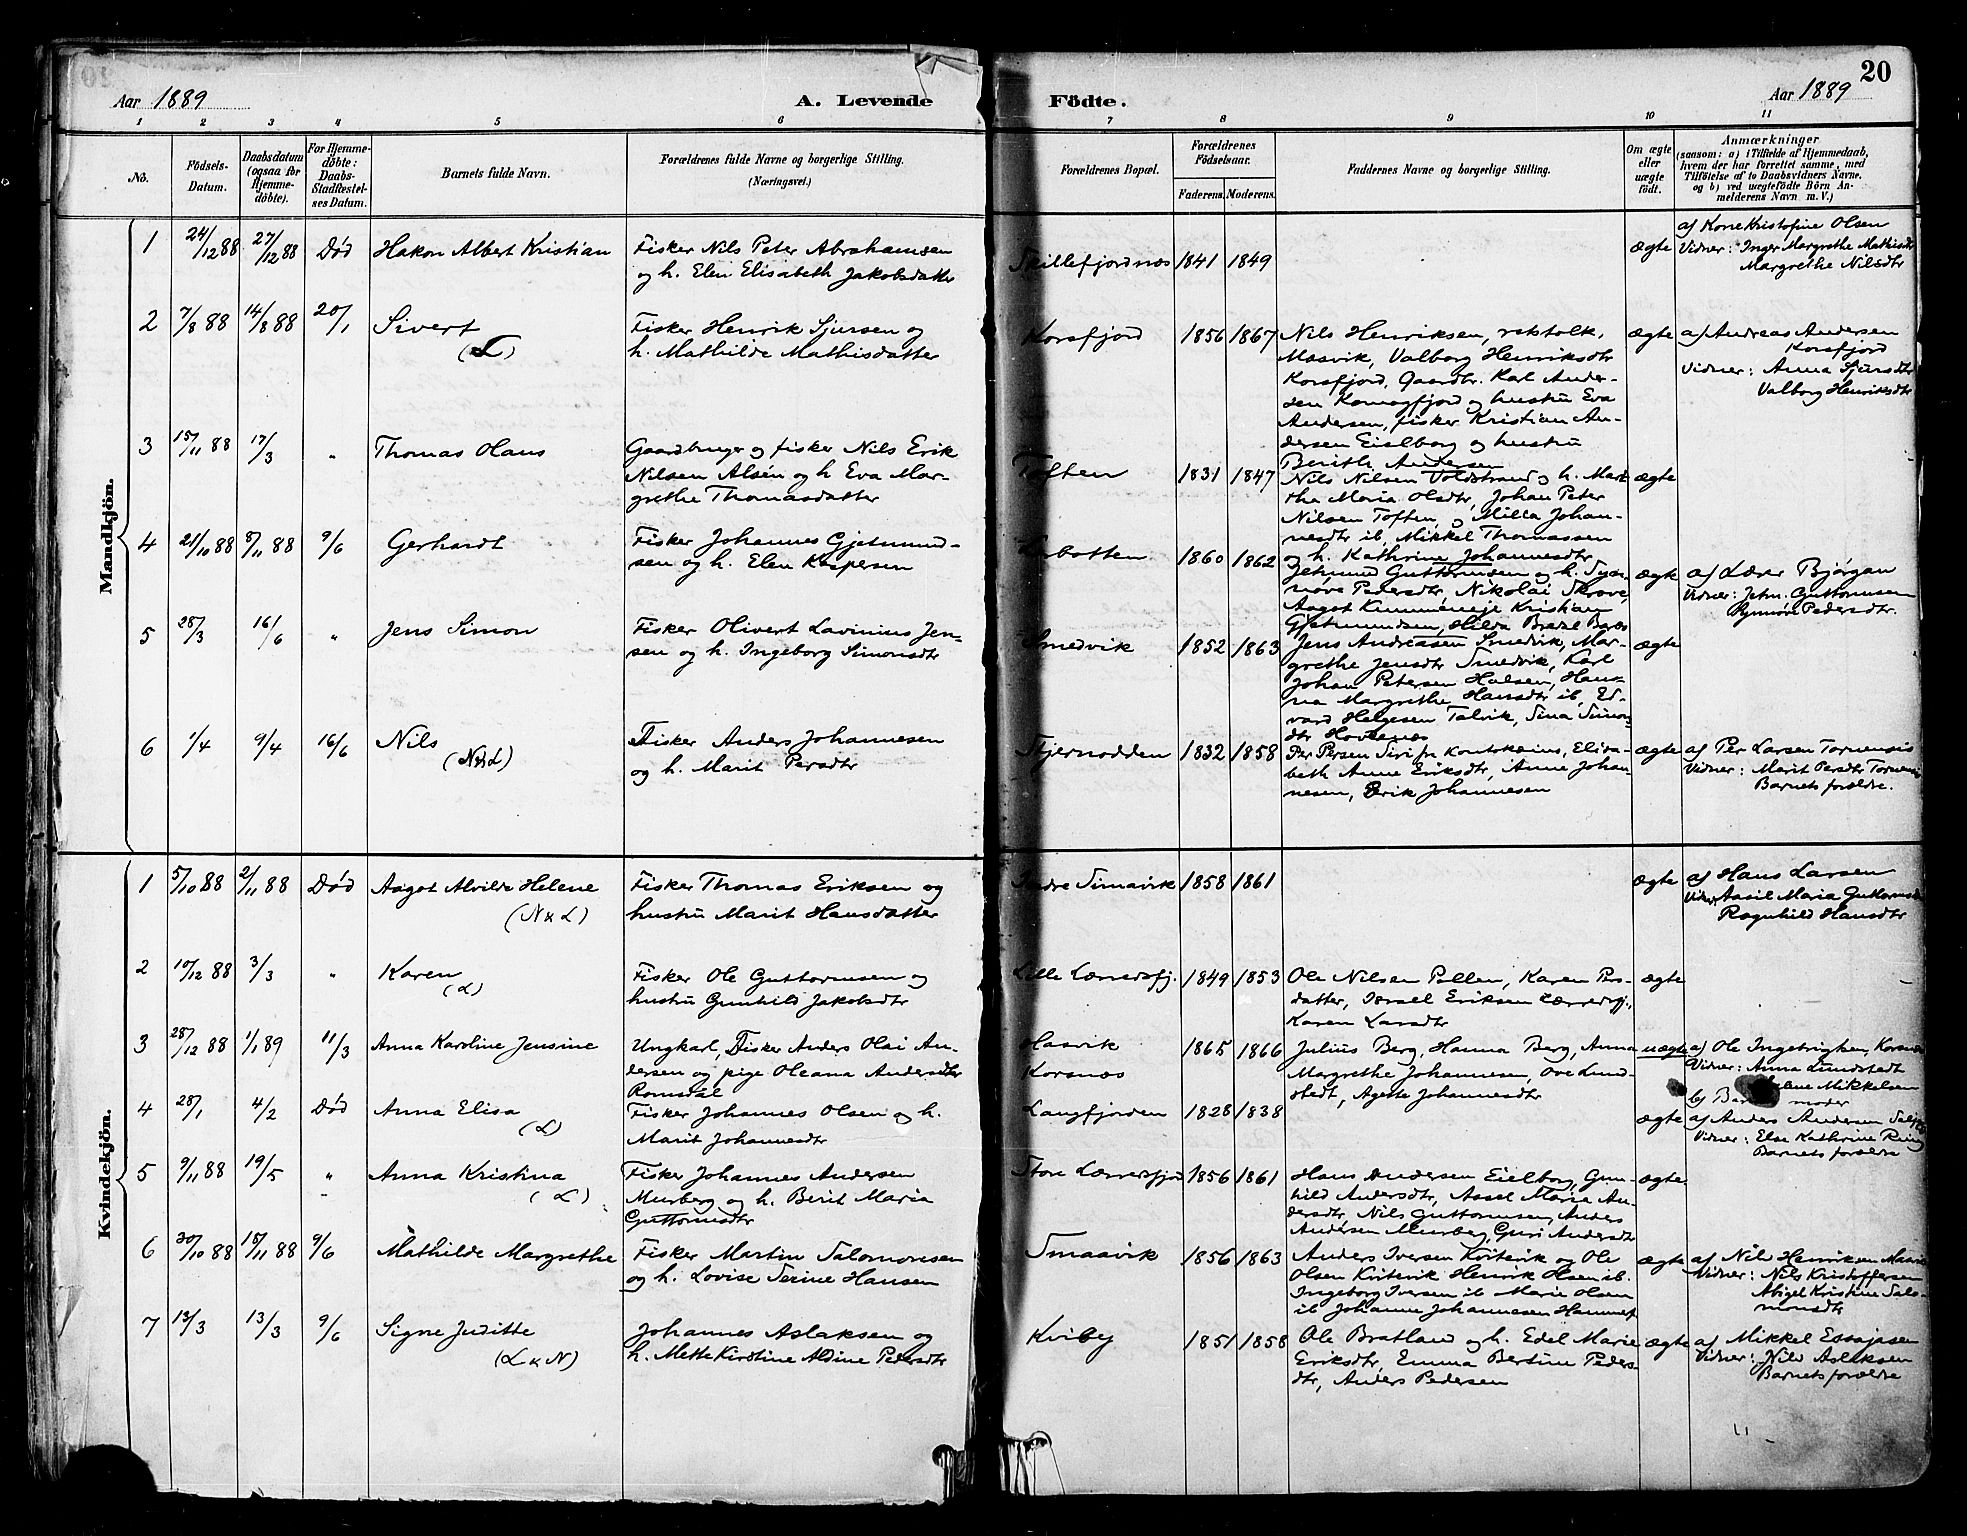 20
Aar 1889
A. Levende
Födte.
Aar 1889
1 2 3 4 5 6 7 8 9 10 11
No.
Födsels-
Datum.
Daabsdatum
(ogsaa for
Hjemme-
döbte).
For Hjemme-
döbte:
Daabs-
Stadfestel-
ses Datum.
Barnets fulde Navn.
Forældrenes fulde Navne og borgerlige Stilling.
(Næringsvei.)
Forældrenes Bopæl.
Forældrenes
Födselsaar.
Faderens. Moderens.
Faddernes Navne og borgerlige Stilling.
Om ægte
eller
uægte
födt.
Anmærkninger
(saasom: a) i Tilfælde af Hjemmedaab,
hvem der har forrettet samme, med
Tilföielse af to Daabsvidners Navne,
og b) ved uægtefödte Börn An-
melderens Navn m. V.)
Mandkjön.
1 24/12 88 27/12 88 Död Hakon Albert Kristian
Fisker Nils Peter Abrahamsen
og h. Elen Elisabeth Jakobsdatter
Skillefjordnes 1841 1849 ægte
af Kone Kristofine Olsen
Vidner: Inger Margrethe Mathisdtr
Margrethe Nilsdtr
2 7/8 88 14/8 88 20/1 Sivert
(L)
Fisker Henrik Sjursen og
h. Mathilde Mathisdatter
Korsfjord 1856 1867
Nils Henriksen, retstolk,
Maasvik, Valborg Henriksdtr
Korsfjord, Gaardbr. Karl Ander-
sen Komagfjord og hustru Eva
Andersen, fisker Kristian An-
dersen Eiselborg og hustru
Berith Andersen
ægte
af Andreas Andersen
Korsfjord
Vidner: Anna Sjursdtr
Valborg Henriksdtr
3 15/11 88 17/3 " Thomas Olaus
Gaardbruger og fisker Nils Erik
Nilsen Alsén og h Eva Mar-
grethe Thomasdatter
Toften 1831 1847
Nils Nilsen Voldstrand og h. Mar-
tha Maria Olsdtr, Johan Peter
Nilsen Toften, og Milla Johan-
nesdtr ib, Mikkel Thomassen
og h. Kathrine Johannesdtr
ægte
4 21/10 88 8/11 88 9/6 Gerhardt
Fisker Johannes Gjetmund-
sen og h. Elen Kaspersen
1860 1862
Jetmund Guttormsen og h. Syn-
nøve Pedersdtr, Nikolai Skrove,
Aagot Kristian
Gjetmundsen, Hilda
ægte
af Lærer Bjørgan
Vidner: Jetm. Guttormsen
Synnøve Pedersdtr.
5 28/3 16/6 " Jens Simon
Fisker Olivert Lavinius Jen-
sen og h. Ingeborg Simonsdtr
Smedvik 1852 1863
Jens Andreassen Smedvik, Mar-
grethe Jensdtr Smedvik, Karl
Johan Petersen Halsen, Han-
na Margrethe Hansdtr ib, Ed-
vard Helgesen Talvik, Sina Simons-
dtr
ægte
6 1/4 9/4 16/6 Nils
(N&L)
Fisker Anders Johannesen
og h. Marit Persdtr
Stjernodden 1832 1858
Per Persen Siri fr Koutokæino, Elisa-
beth Anne Eriksdtr, Anne Johan-
nesen, Erik Johannesen
ægte
af Per Larsen Tornensis
Vidner: Marit Persdtr Tornensis
Barnets forældre.
Kvindekjön.
1 5/10 88 2/11 88 Död Aagot Alvilde Helene
(N & L)
Fisker Thomas Eriksen og
hustru Marit Hansdatter
Indre Simavik 1858 1861 ægte
af Hans Larsen
Vidner, Aasil Maria Guttormsdtr
Ragnhild Hansdtr
2 10/12 88 3/3 " Karen
(L)
Fisker Ole Guttormsen og
hustru Gunhild Jakobsdtr
Lille Lærredsfj. 1849 1853
Ole Nilsen Pollen, Karen Pers-
datter, Israel Eriksen Lærredsfj.,
Karen Larsdtr
ægte
3 28/12 88 1/1 89 11/3 Anna Karoline Jensine
Ungkarl, Fisker Anders Olai An-
dersen og pige Oleana Andersdtr
Romsdal
Haavik
Korsnes
1865 1866
Julius Berg, Hanna Berg, Anna
Margrethe Johannesen, Ove Lund-
stedt, Agethe Johannesdtr
uægte
a) Ole Ingebrigtsen, Korsnes
Vidner: Anna Lundstedt
Mikkelsen
b) Bar moder
4 28/1 4/2 Död Anna Elisa
(L)
Fisker Johannes Olsen og h.
Marit Johannesdtr
Langfjorden 1828 1838 ægte
af Anders Andersen
Vidner: Else Kathrine Ring
Barnets forældre
5 9/11 88 19/5 " Anna Kristina
(L)
Fisker Johannes Andersen
Murberg og h. Berit Maria
Guttormsdtr
Store Lærredsfjord 1856 1861
Hans Andersen Eielborg, Gun-
hild Andersdtr, Aasel Marie An-
dersdtr, Nils Guttormsen, Anders
Andersen Murberg, Guri Andersdtr
ægte
6 30/10 88 15/11 88 9/6 Mathilde Margrethe
Fisker Martin Salomonsen
og h. Lovise Serine Hansen
Smaavik 1856 1863
Anders Iversen Kvitevik og Ole
Olsen Kvitevik Henrik Olsen ib.
Ingeborg Iversen ib Marie Olsen
ib Johanne Johannesen Hammerf
ægte
af Nils Henriksen
Vidner: Nils Kristoffersen
Abigel Kristine Salo-
monsdtr
7 13/3 13/3 9/6 Signe Juditte
(L & N)
Johannes Aslaksen og
h. Mette Kirstine Aldine Pedersdtr
Kviby 1851 1858
Ole Bratland og h. Edel Marie
Eriksdtr, Emma Bertine Peders-
dtr, Anders Pedersen
ægte
af Mikkel Essajasen
Vidner: Nils Aslaksen
Barnets forældre